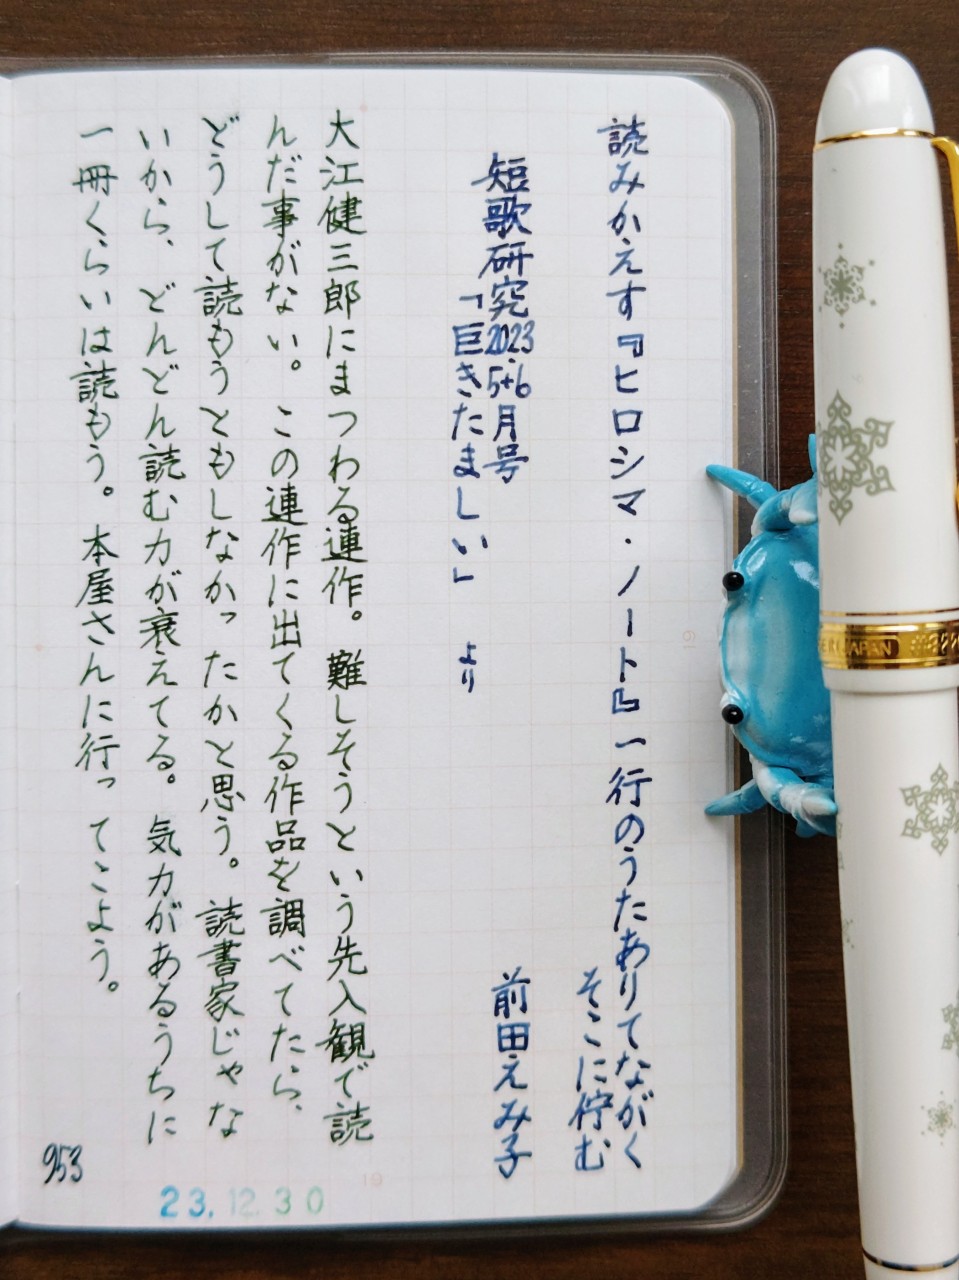 読みかえす『ヒロシマ・ノート』一行のうたありてながく
そこに佇む
前田えみ子
短歌研究2023.5+6月号
「巨きたましい」 より
大江健三郎にまつわる連作。難しそうという先入観で読
んだ事がない。この連作に出てくる作品を調べてたら、
どうして読もうともしなかったかと思う。読書家じゃな
いから、どんどん読む力が衰えてる。気力があるうちに
一冊くらいは読もう。本屋さんに行ってこよう。
953
23.12.30
JAPAN